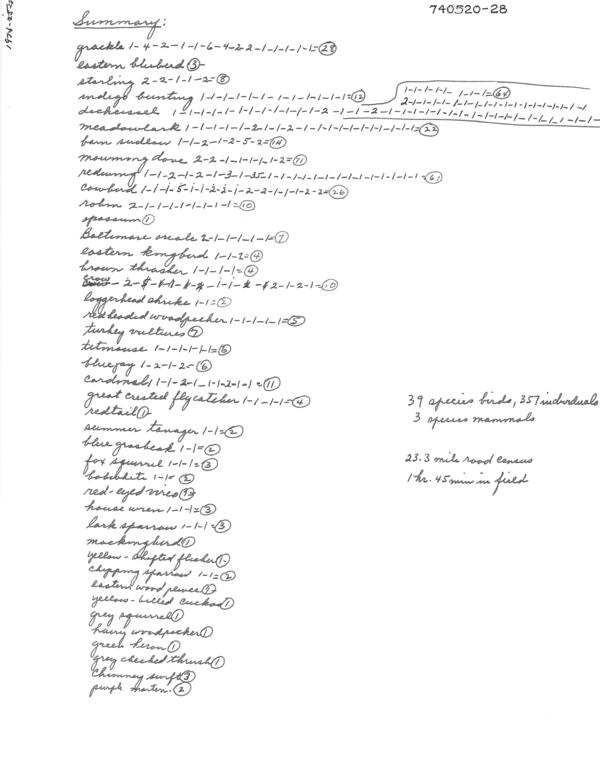 740520-28
Summary:
grackle 1-4-2-1-1-6-4-2-2-1-1-1-1-1=28
eastern bluebird 3
starling 2-2-1-1-2=8
indigo bunting 1-1-1-1-1-1-1-1-1-1-1-1=12
dickcissel
1-1-1-1-1- 1-1-1=64
meadowlark 1-1-1-1-1-2-1-1-2-1-1-1-1-1-1-1-1-1-1-1=22
barn swallow 1-1-2-1-2-5-2=14
mourning dove 2-2-1-1-1-1-1-2=11
redwing 1-1-2-1-2-1-3-1-35-1-1-1-1-1-1-1-1-1-1-1-1-1=61
cowbird 1-1-1-5-1-1-2-2-1-2-2-1-1-1-2-2=26
robin 2-1-1-1-1-1-1-1-1=10
opossum 1
Baltimore oreole 2-1-1-1-1-1=7
eastern kingbird 1-1-2=4
brown thrasher 1-1-1-1=4
crow =10
loggerhead shrike 1-1=2
redheaded woodpecker 1-1-1-1-1=5
turkey vultures
titmouse 1-1-1-1-1-1=6
bluejay 1-2-1-2=6
cardinals =11
great crested flycatcher 1-1-1-1=4
redtail 1
summer tanager 1-1=2
blue grosbeak 1-1=2
fox squirrel 1-1-1=3
bobwhite 1-1=2
red-eyed vireo 1
house wren 1-1-1=3
lark sparrow 1-1-1=3
mockingbird 1
yellow-shafted flicker 1
chipping sparrow 1-1=2
eastern wood pewee 1
yellow-billed cuckoo 1
grey squirrel 1
hairy woodpecker 1
green heron 1
grey cheeked thrush 1
chimney swift 3
purple marten. 2
39 species birds, 357 individuals
3 species mammals
23.3 mile road census
1 hr. 45 min in field